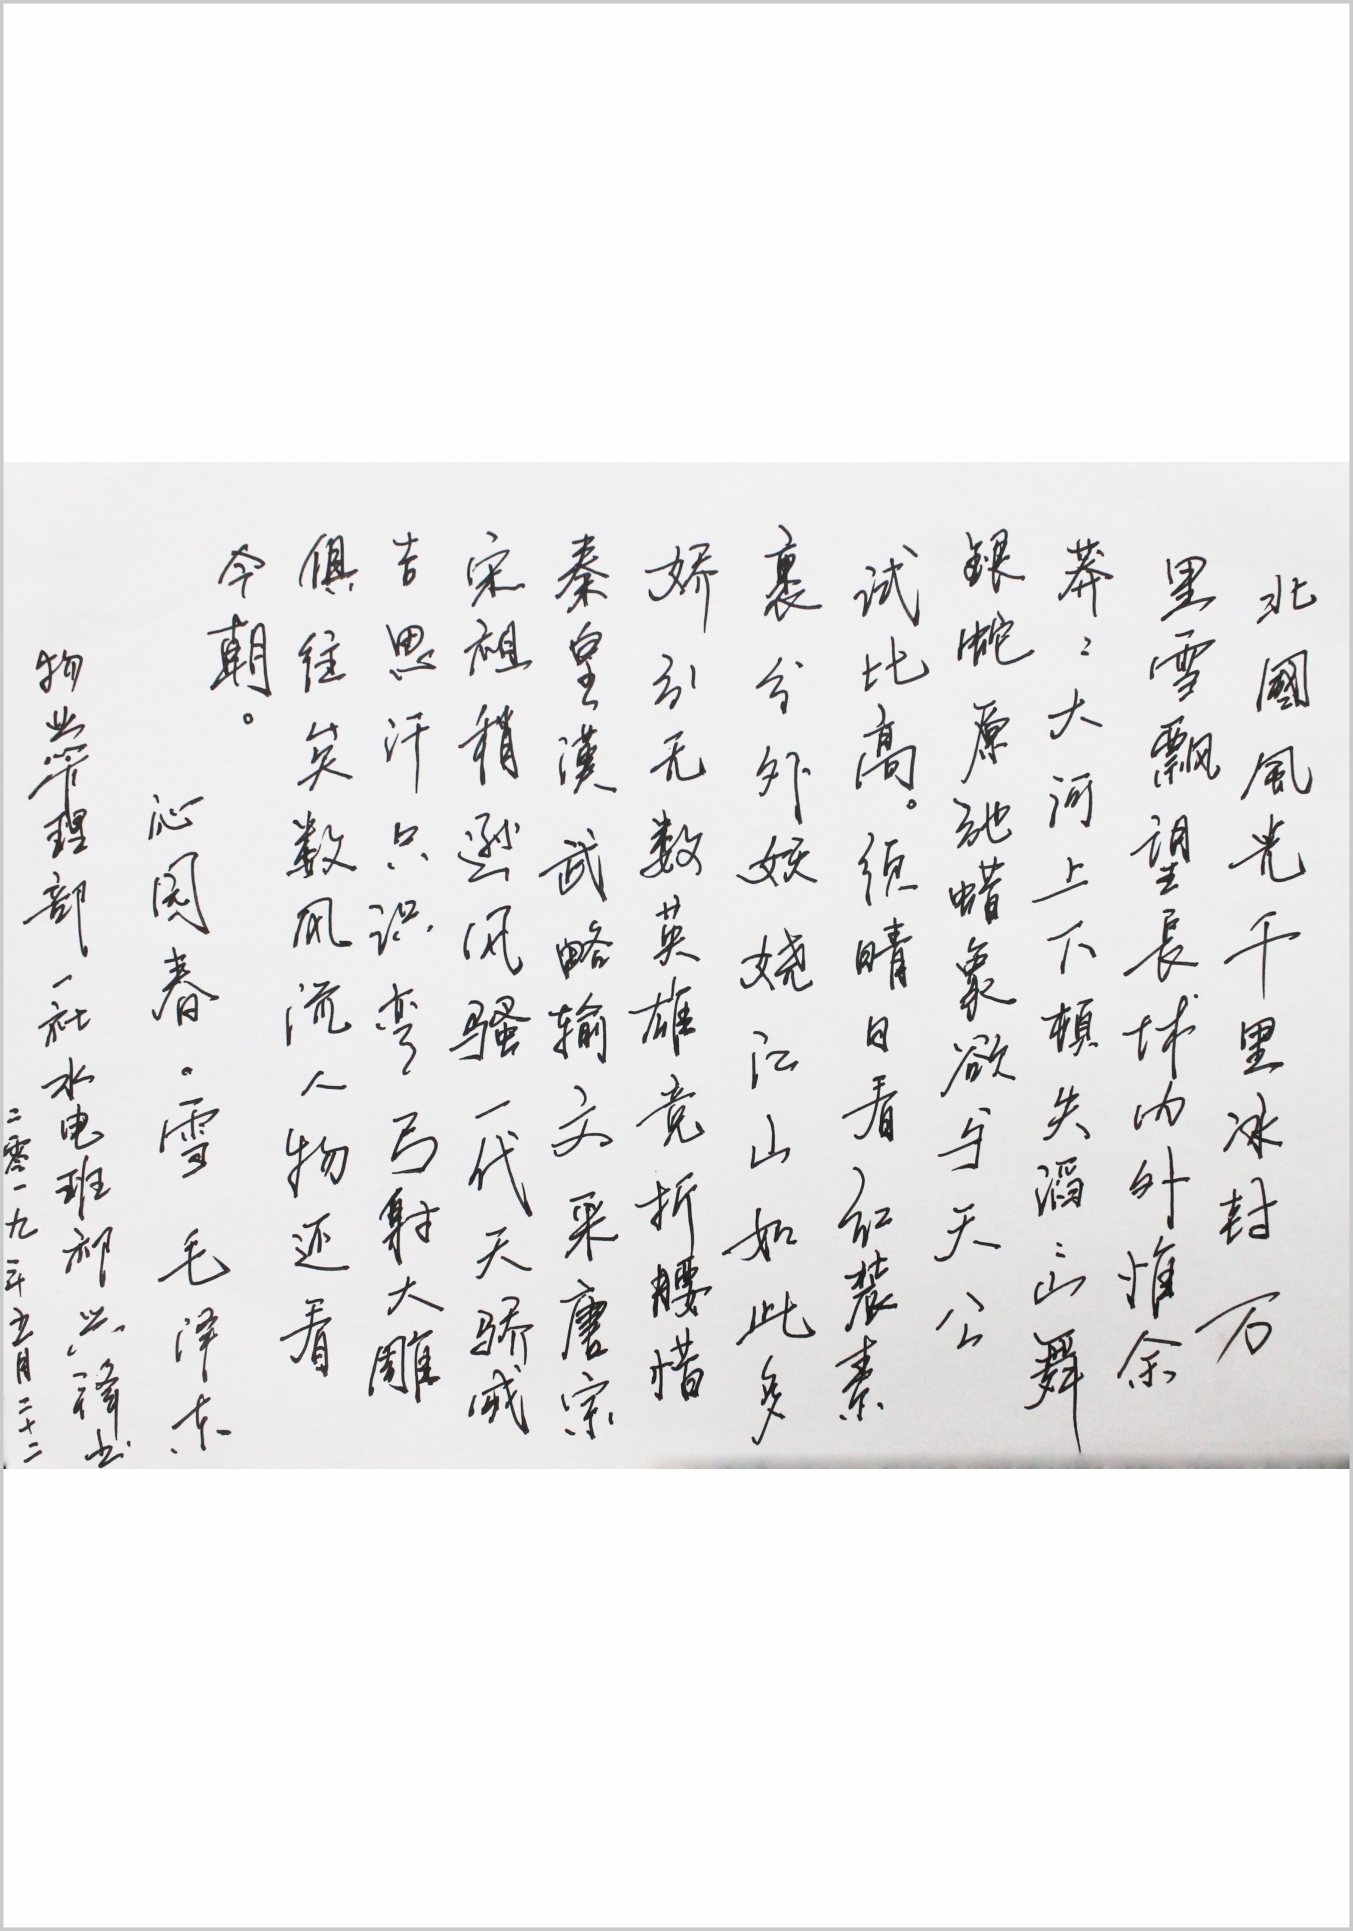 北國風光千里冰封万
里雪飄望長城内外惟余
莽〻大河上下頓失滔〻山舞
銀蛇原驰蜡象欲与天公
试比高。须晴日看红装素
裹分外妖娆江山如此多
娇引无数英雄竞折腰惜
秦皇漢武略输文采唐宗
宋祖稍逊风骚一代天骄成
吉思汗只识弯弓射大雕
俱往矣数风流人物还看
今朝。
沁园春·雪 毛泽东
物业管理部一社水电班祁兴禄书
二零一九年五月二十二